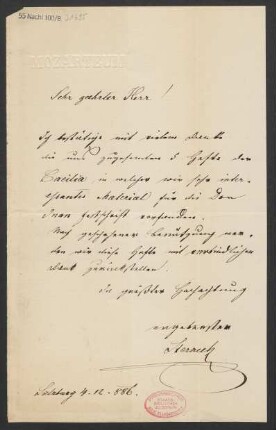 55 Nachl 100/B,
MOZARTEUM
Sehr geehrter Herr!
Ich bestätige mit vielem Danke
die uns zugesandten 5 Hefte der
Cäcilia in welcher wir sehr inter-
essantes Material für die Don
Juan Festschrift vorfanden.
Nach geschehener Benützung wer-
den wir diese Hefte mit verbindlichem
Dank zurückstellen.
In größter Hochachtung
ergebenster
Salzburg 4.-12-886.